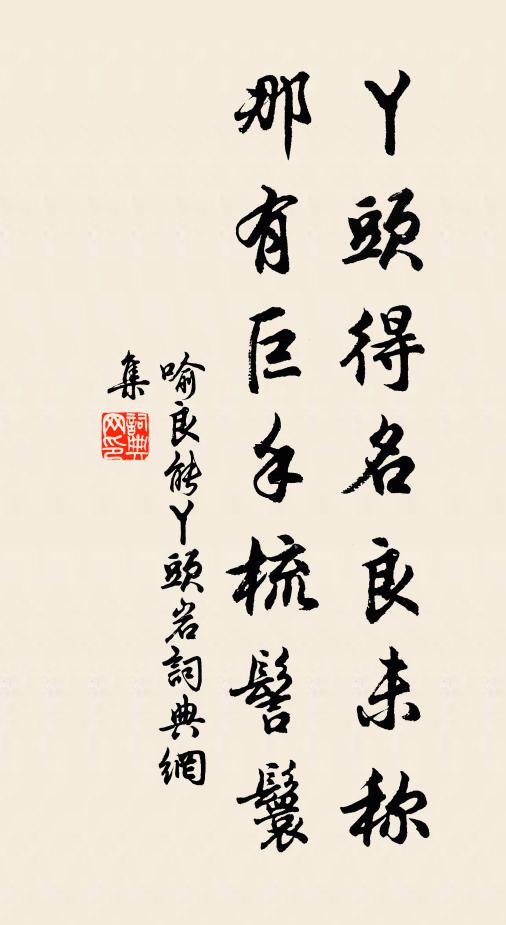 丫頭得名良未称
那有巨手梳髻鬟
喻良能丫頭岩詞典網
集
詞典網印